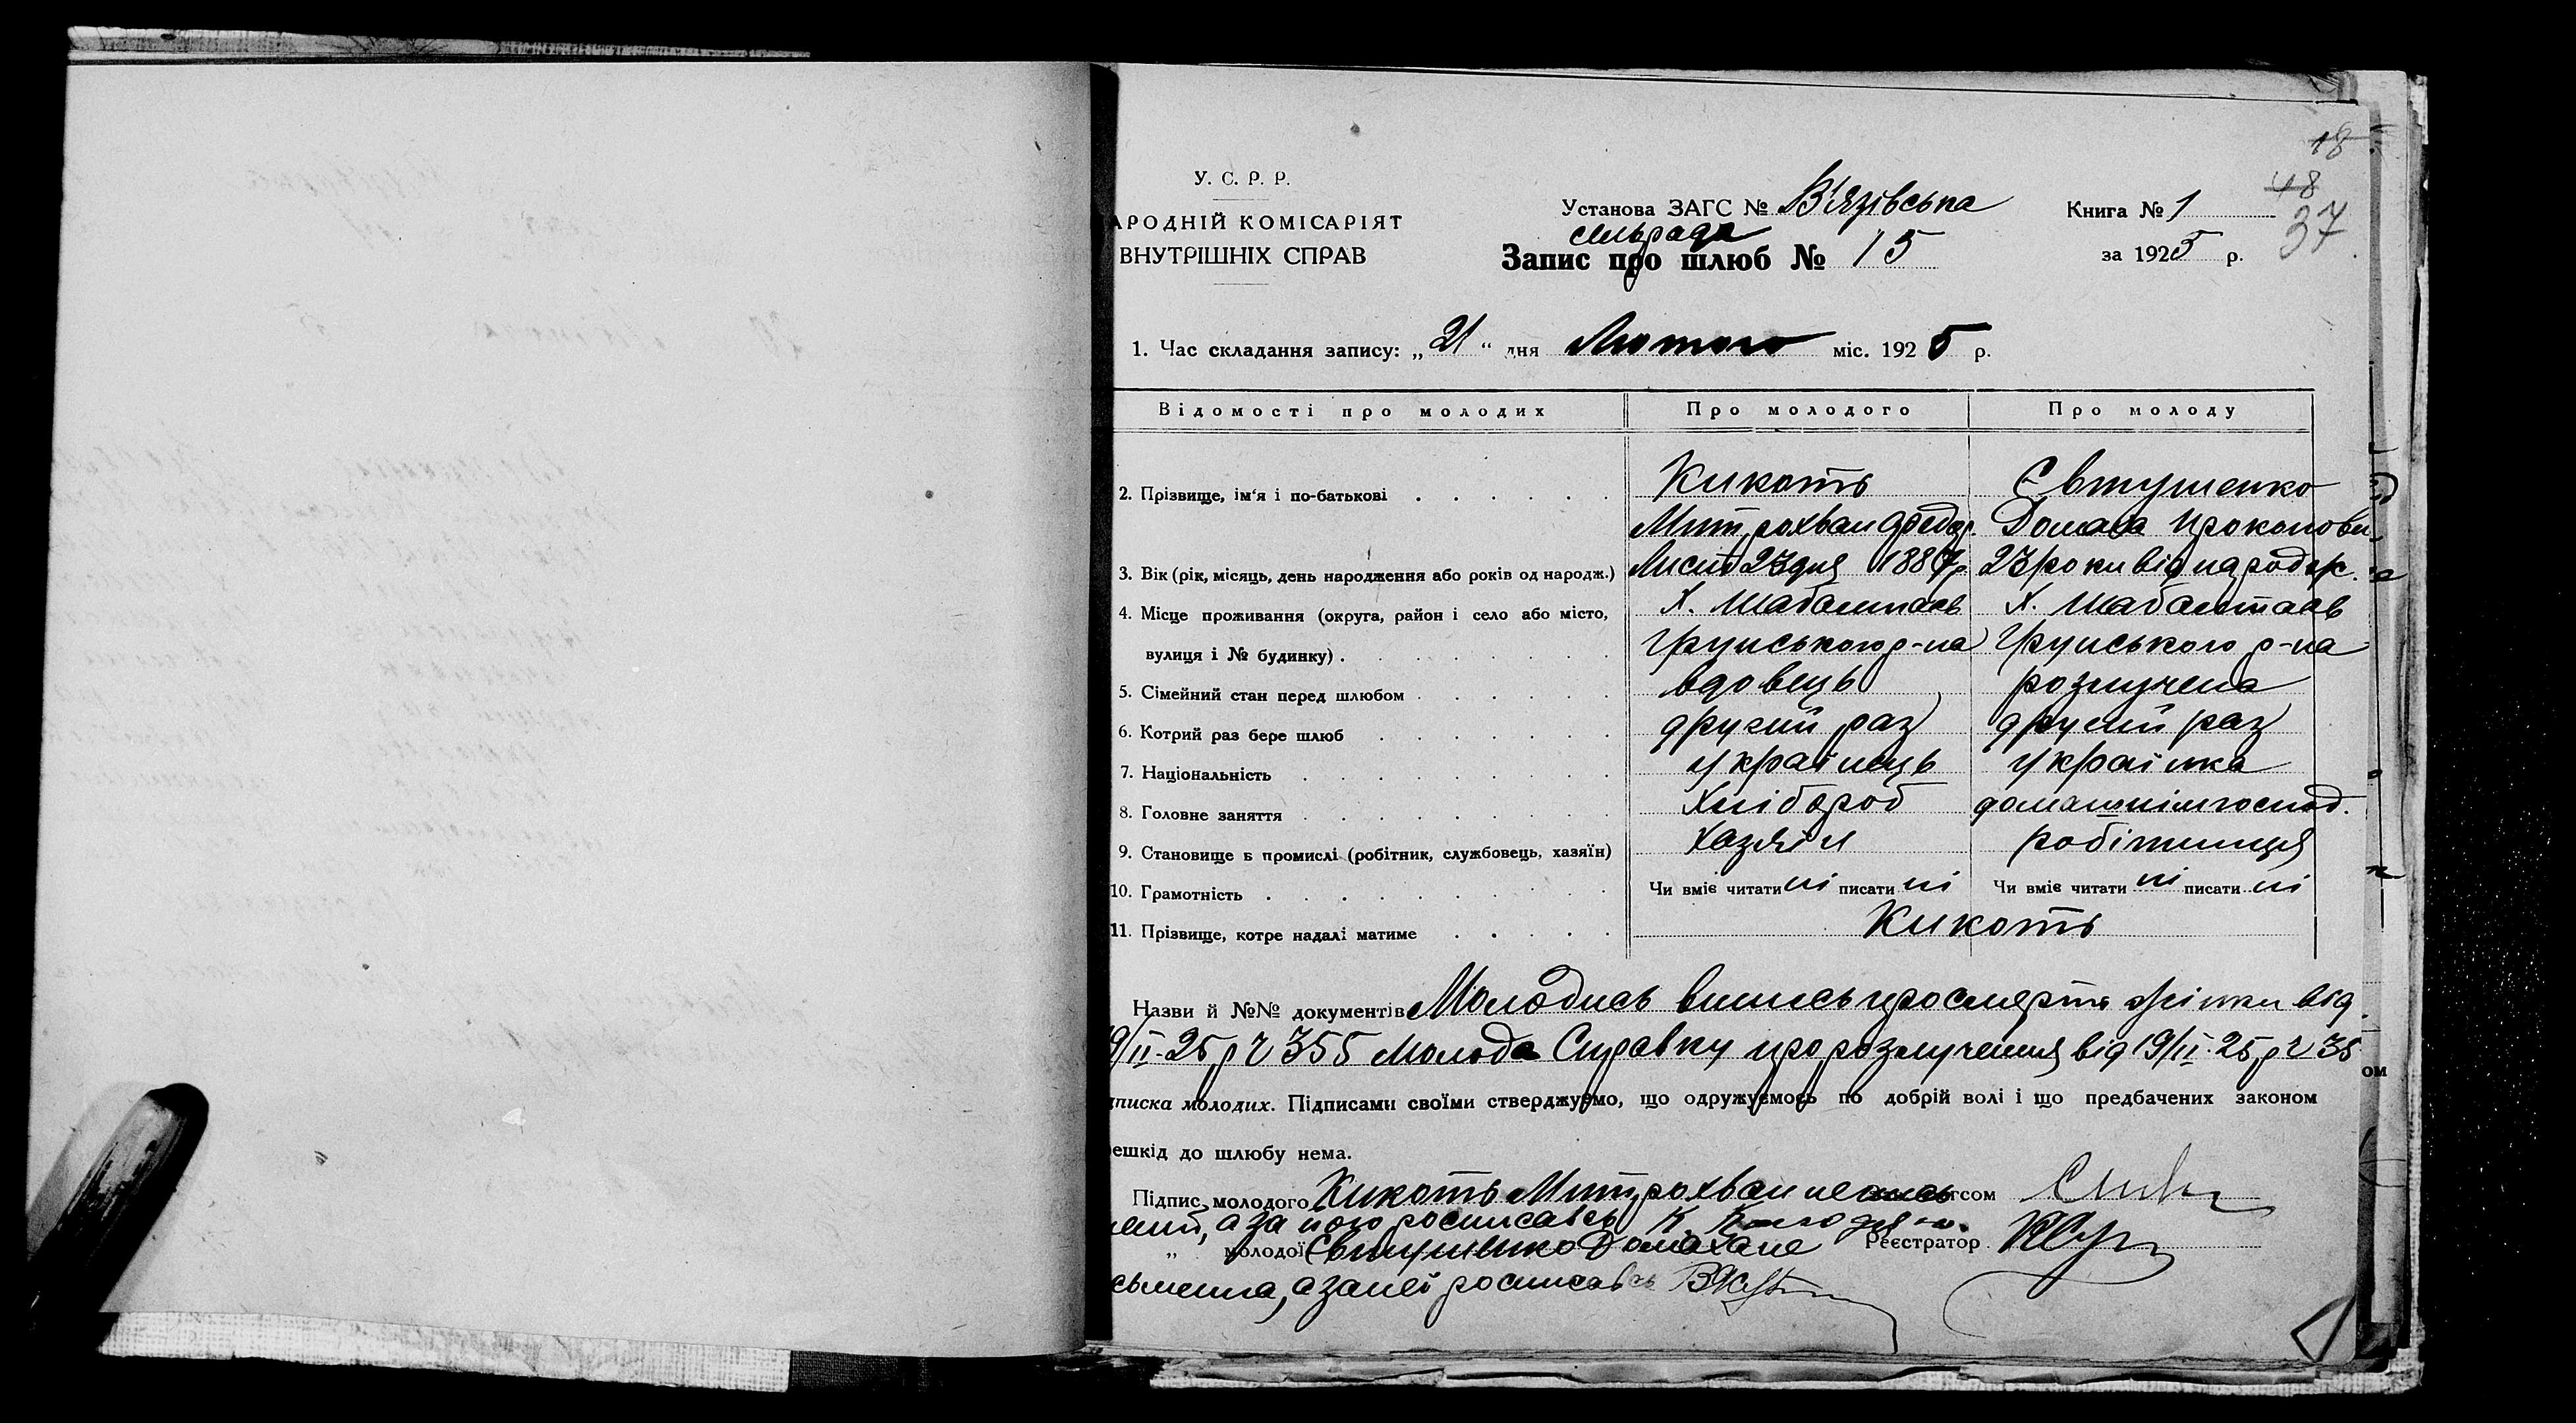 18
48
37
У. С. Р. Р.
АРОДНІЙ КОМІСАРІЯТ
ВНУТРІШНІХ СПРАВ
Установа ЗАГС № В'язівська
сільрада
Книга № 1
Запис про шлюб № 15
за 1925 р.
1. Час складання запису: „21“ дня Лютого міс. 1925 р.
Відомості про молодих Про молодого Про молоду
2. Прізвище, ім'я і по-батькові Кикоть Євтушенко
Митрохван Федор. Домаха Прокопови
3. Вік (рік, місяць, день народження або років од народж.) Лист 23 дня 1887р 23 роки від народж.
4. Місце проживання (округа, район і село або місто, Х. Шабалтаєв Х. Шабалтаєв
вулиця і № будинку) Грунського р-на Грунського р-на
5. Сімейний стан перед шлюбом вдовець розлучена
6. Котрий раз бере шлюб другий раз другий раз
7. Національність українець українка
8. Головне заняття Хлібороб домашнім господ.
9. Становище в промислі (робітник, службовець, хазяїн) хазяїн робітниця
10. Грамотність Чи вміє читати ні писати ні Чи вміє читати ні писати ні
11. Прізвище, котре надалі матиме Кикоть
Назви й №№ документів Молодись випись про смерть жінки від
9/II-25 р ч 355 Молода Справку про розлучення від 19/II-25 р ч 35
ом
писка молодих. Підписами своїми стверджуємо, що одружуємось по добрій волі і що предбачених законом
ешкід до шлюбу нема.
Підпис молодого Кикоть Митрохван неписьгсом
мений, а за його росписавсь К.
„ молодої Євтушенко Домаха не Реєстратор
сьменна, а за неї росписавсь